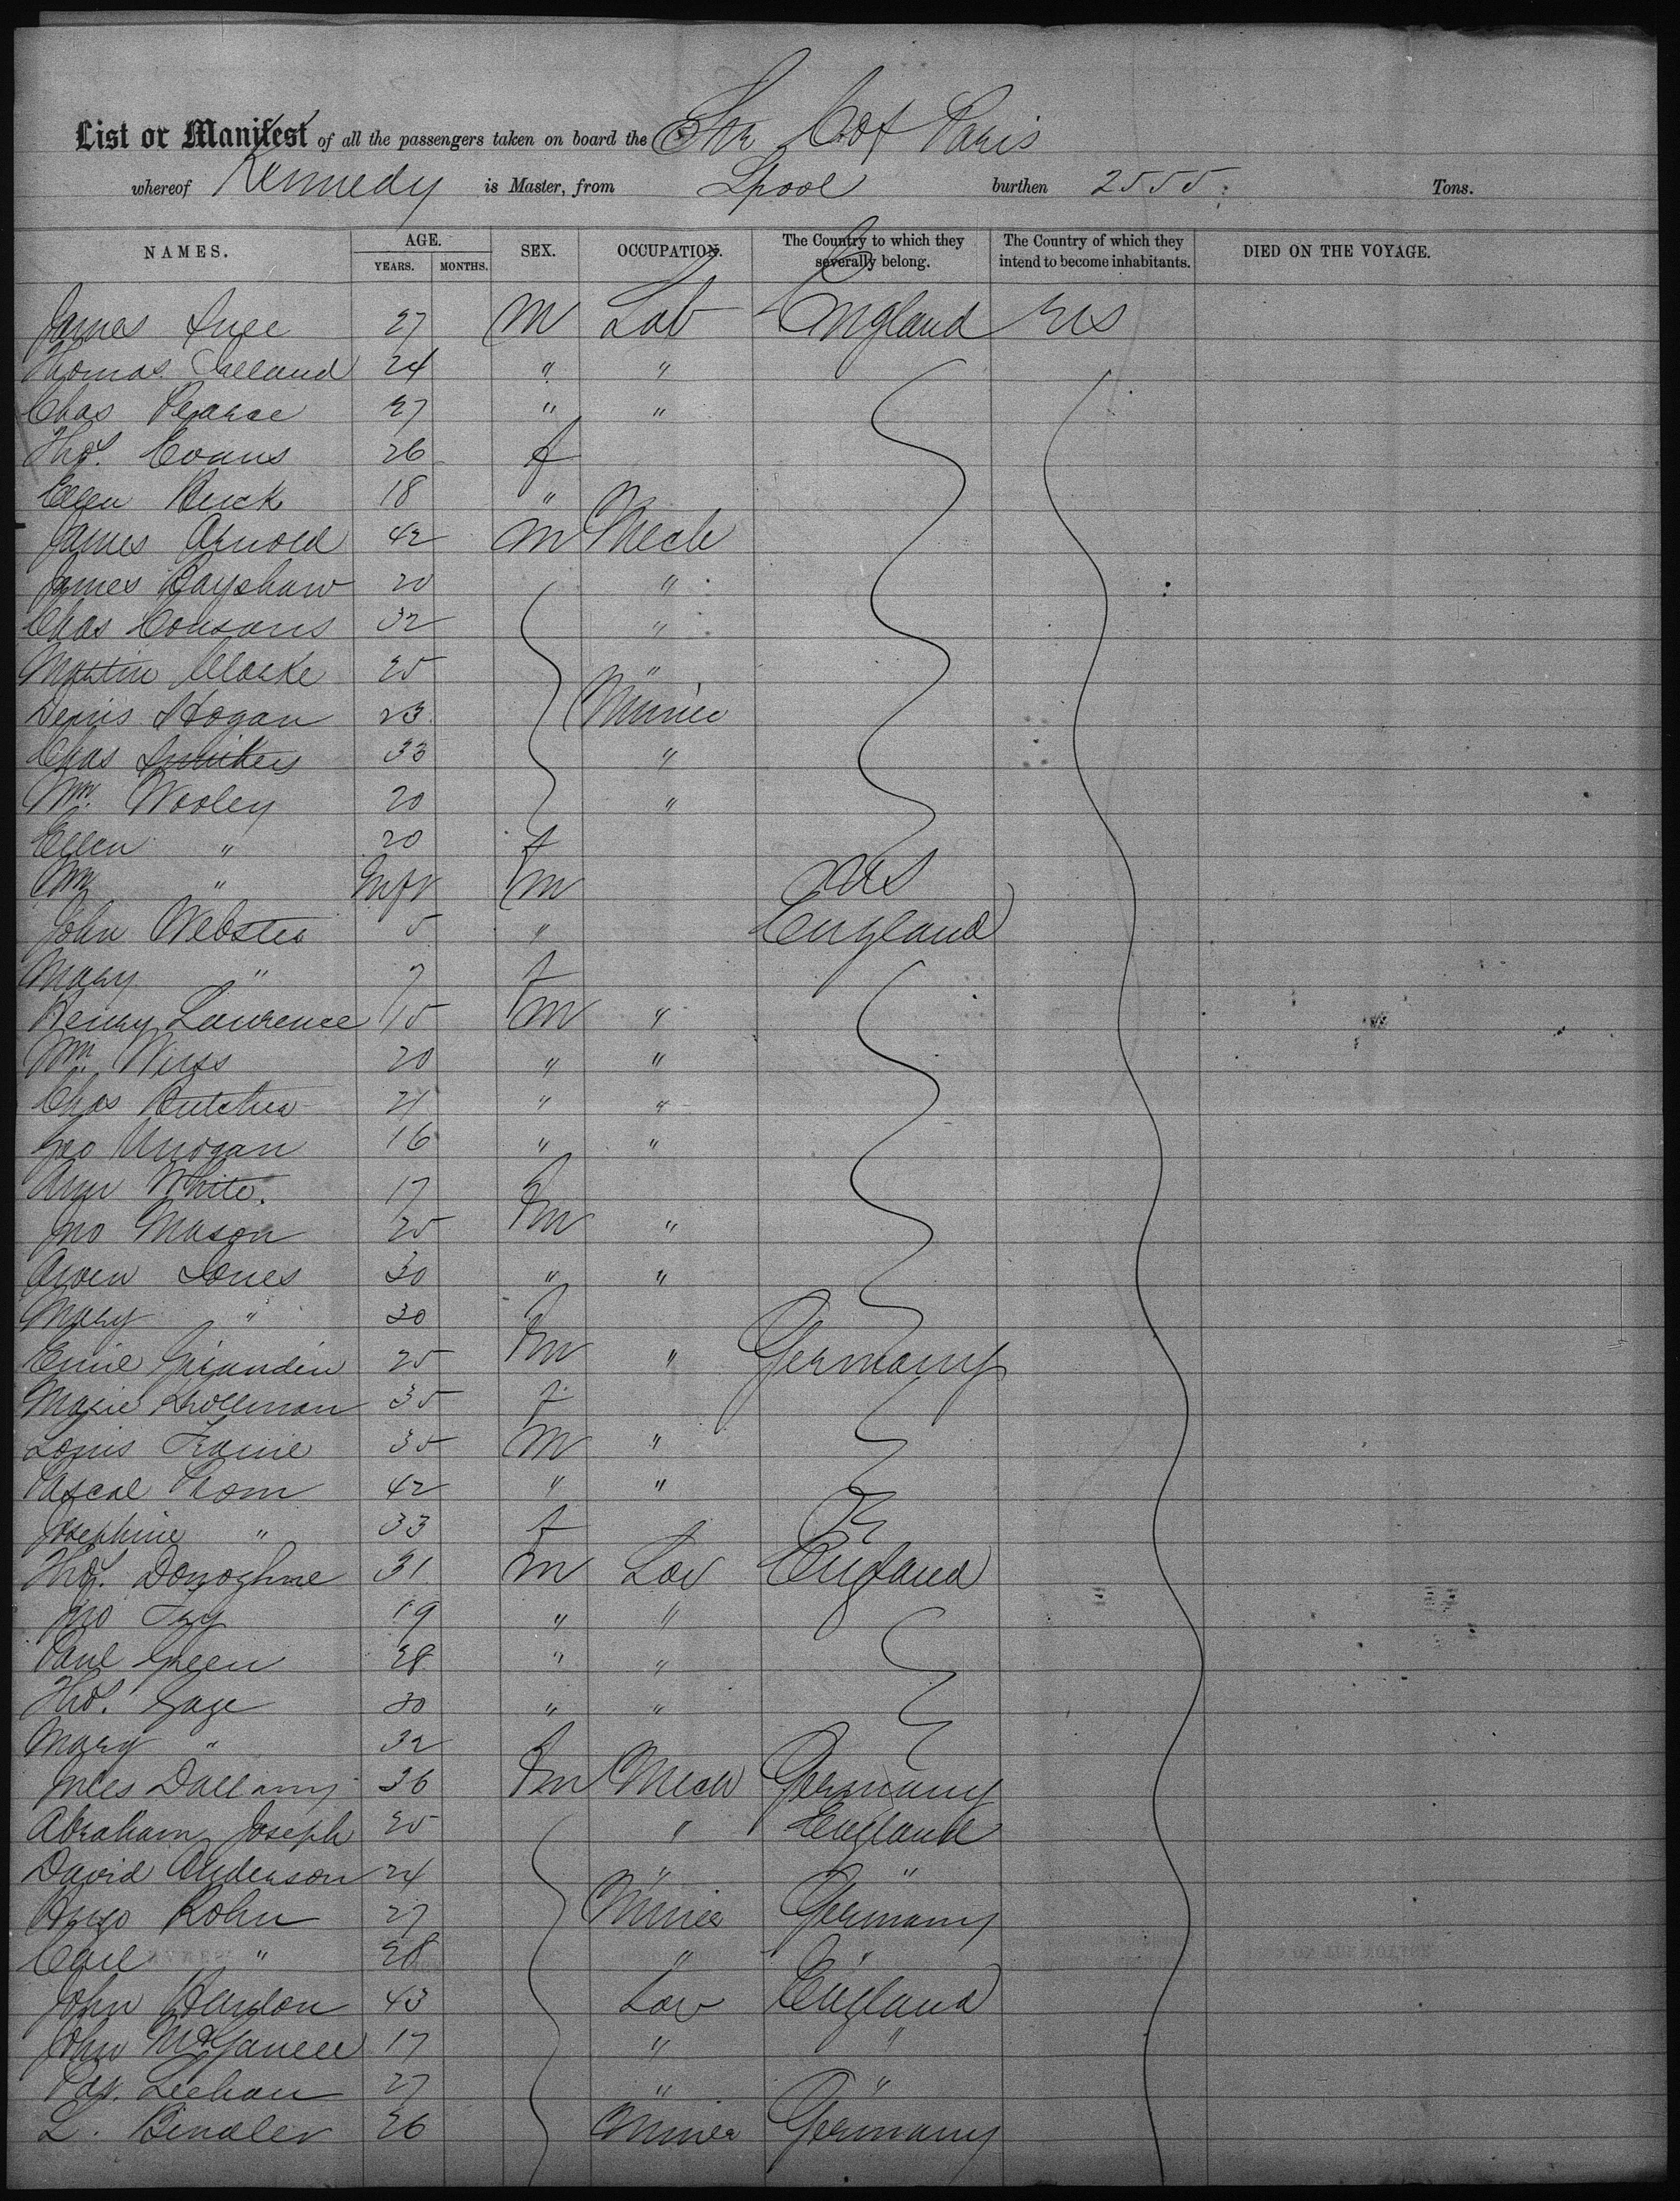 List or Manifest of all the passengers taken on board the Str C of Paris
whereof Kennedy is Master, from Lpool burthen 2555 Tons.
NAMES. AGE. YEARS. MONTHS. SEX. OCCUPATION. The Country to which they severally belong. The Country of which they intend to become inhabitants. DIED ON THE VOYAGE.
James 27 M Lab England US
Thomas 24 " "
Chas Pearce 27 " "
Thos. Evans 26 f
Ellen 18 "
James Arnold 42 M Mech
James Bayshaw 20 "
Chas Cousans 32 "
Martin Clarke 25 "
Denis Hogan 23 Miner
Chas 33 "
Wm. Wooley 20 "
Ellen " 20 f
Wm " Inft m US
John Webster 5 " England
Mary " 7 f
Henry Lawrence 15 m "
Wm 20 " "
Chas Butcher 21 " "
Geo 16 " "
Ann White. 17 f
Jno Mason 25 m "
Owen Jones 30 " "
Mary " 30 f
Emile Girandin 25 m " Germany
Marie 35 f
Louis 35 m "
Pascal Thom 42 " "
Josephine " 33 f
Thos. Donoghue 31 m Lab England
Jno Fry 19 " "
Paul Green 28 " "
Thos. Gage 30 " "
Mary " 32 f
Jules 36 m Mech Germany
Abraham Joseph 25 " England
David Anderson 24 " "
Hugo Kohn 27 Miner Germany
Carl " 28 " "
John Hanlon 43 Lab England
John 17 " "
Pat. Leehan 27 " "
L. Bindler 26 Miner Germany